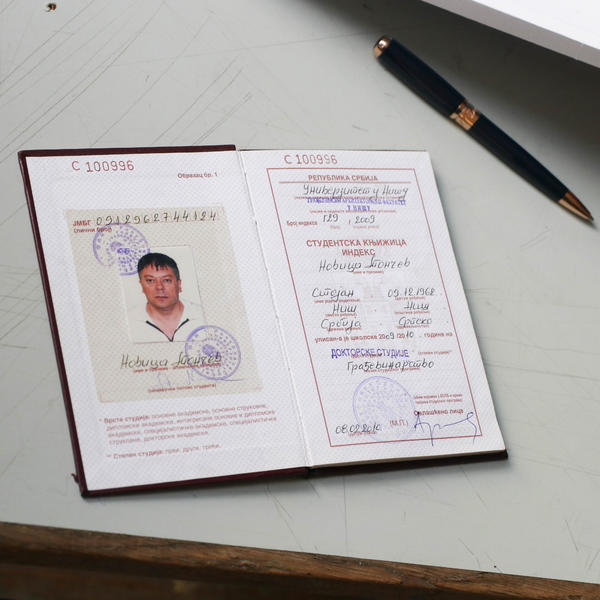 С 100996
Образац бр. 1
ЈМБГ 0912962744124
(лични број)
Новица Тончев
(својеручни потпис студента)
* Врста студија: основне академске, основне струковне,
дипломске академске, интегрисане основне и дипломске
академске, специјалистичке академске, специјалистичке
струковне, докторске академске.
** Степен студија: први, други, трећи.
С 100996
РЕПУБЛИКА СРБИЈА
Универзитет у Нишу
У НИШУ
Број индекса 129 , 2009
СТУДЕНТСКА КЊИЖИЦА
ИНДЕКС
Новица Тончев
(име и презиме)
Стојан 09.12.1962.
Ниш Ниш
Србија Српско
уписан-а је школске 2009/2010. године на
ДОКТОРСКЕ СТУДИЈЕ
Грађевинарство
Овлашћено лице
08.02.2010 (М.П.)